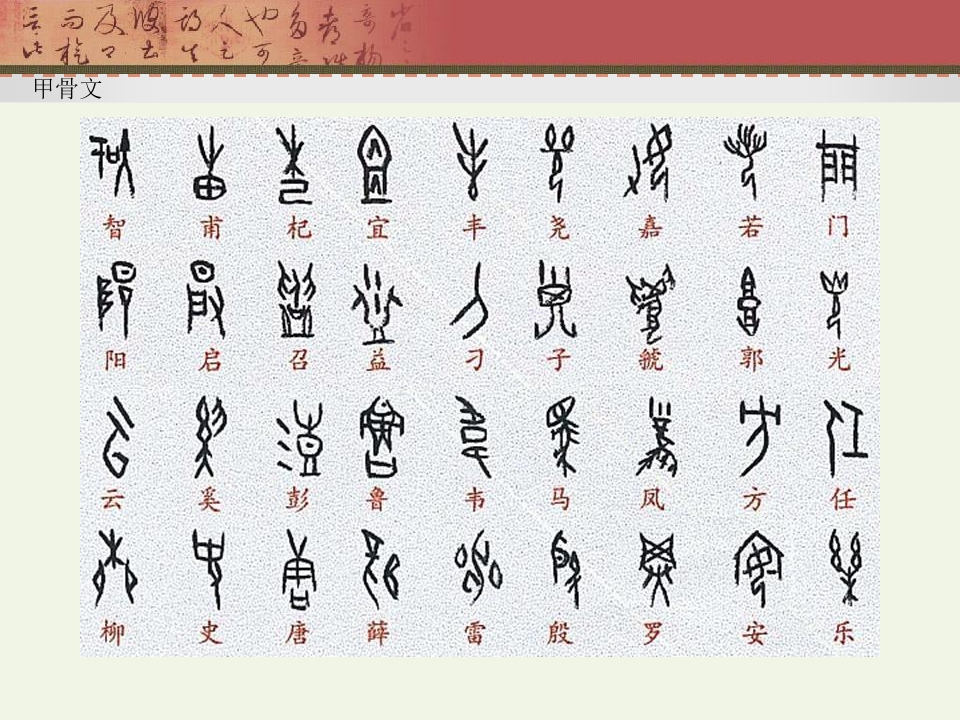 甲骨文
智 甫 杞 宜 丰 尧 嘉 若 门
阳 启 召 益 刁 子 虢 郭 光
云 奚 彭 鲁 韦 马 凤 方 任
柳 史 唐 薛 雷 殷 罗 安 乐